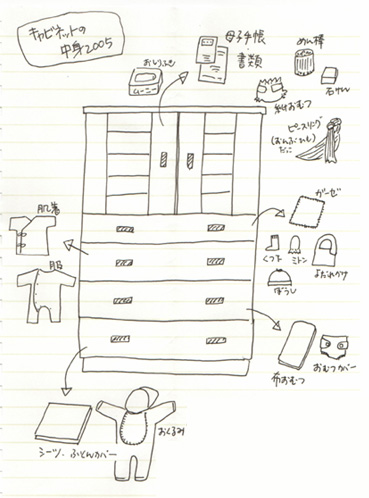 キャビネットの
中身2005
おしりふき
ムーニー
母子手帳
・書類
めん棒
石けん
紙おむつ
ピースリング
(おんぶひも)
だっこ
ガーゼ
くつ下
ミトン
よだれかけ
ぼうし
肌着
服
布おむつ
おむつカバー
シーツ、ふとんカバー
おくるみ